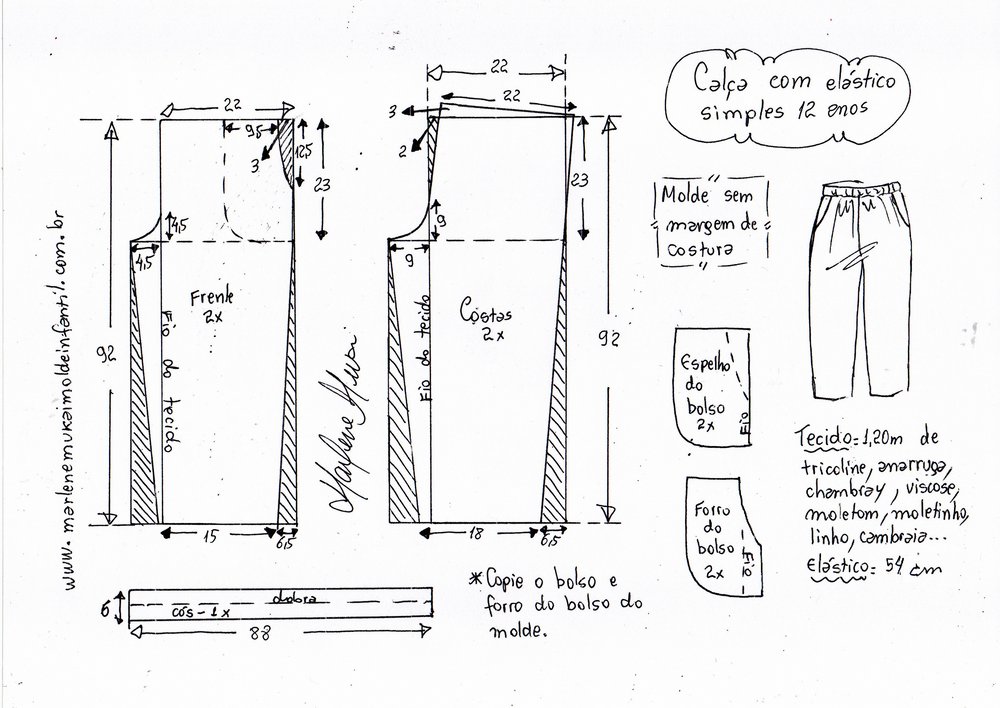 Calça com elástico
simples 12 anos
Molde sem
margem de
costura
22
9,5
3
12,5
23
4,5
4,5
Frente
2x
Fio do tecido
92
15
6,5
22
22
3
2
23
9
9
Costas
2x
Fio do tecido
92
18
6,5
www.marlenemukaimoldeinfantil.com.br
Espelho
do
bolso
2x
Fio
Forro
do
bolso
2x
Fio
Tecido = 1,20m de
tricoline, anarruga,
chambray, viscose,
moletom, moletinho,
linho, cambraia...
Elástico = 54 cm
6
dobra
cós - 1x
88
*Copie o bolso e
forro do bolso do
molde.